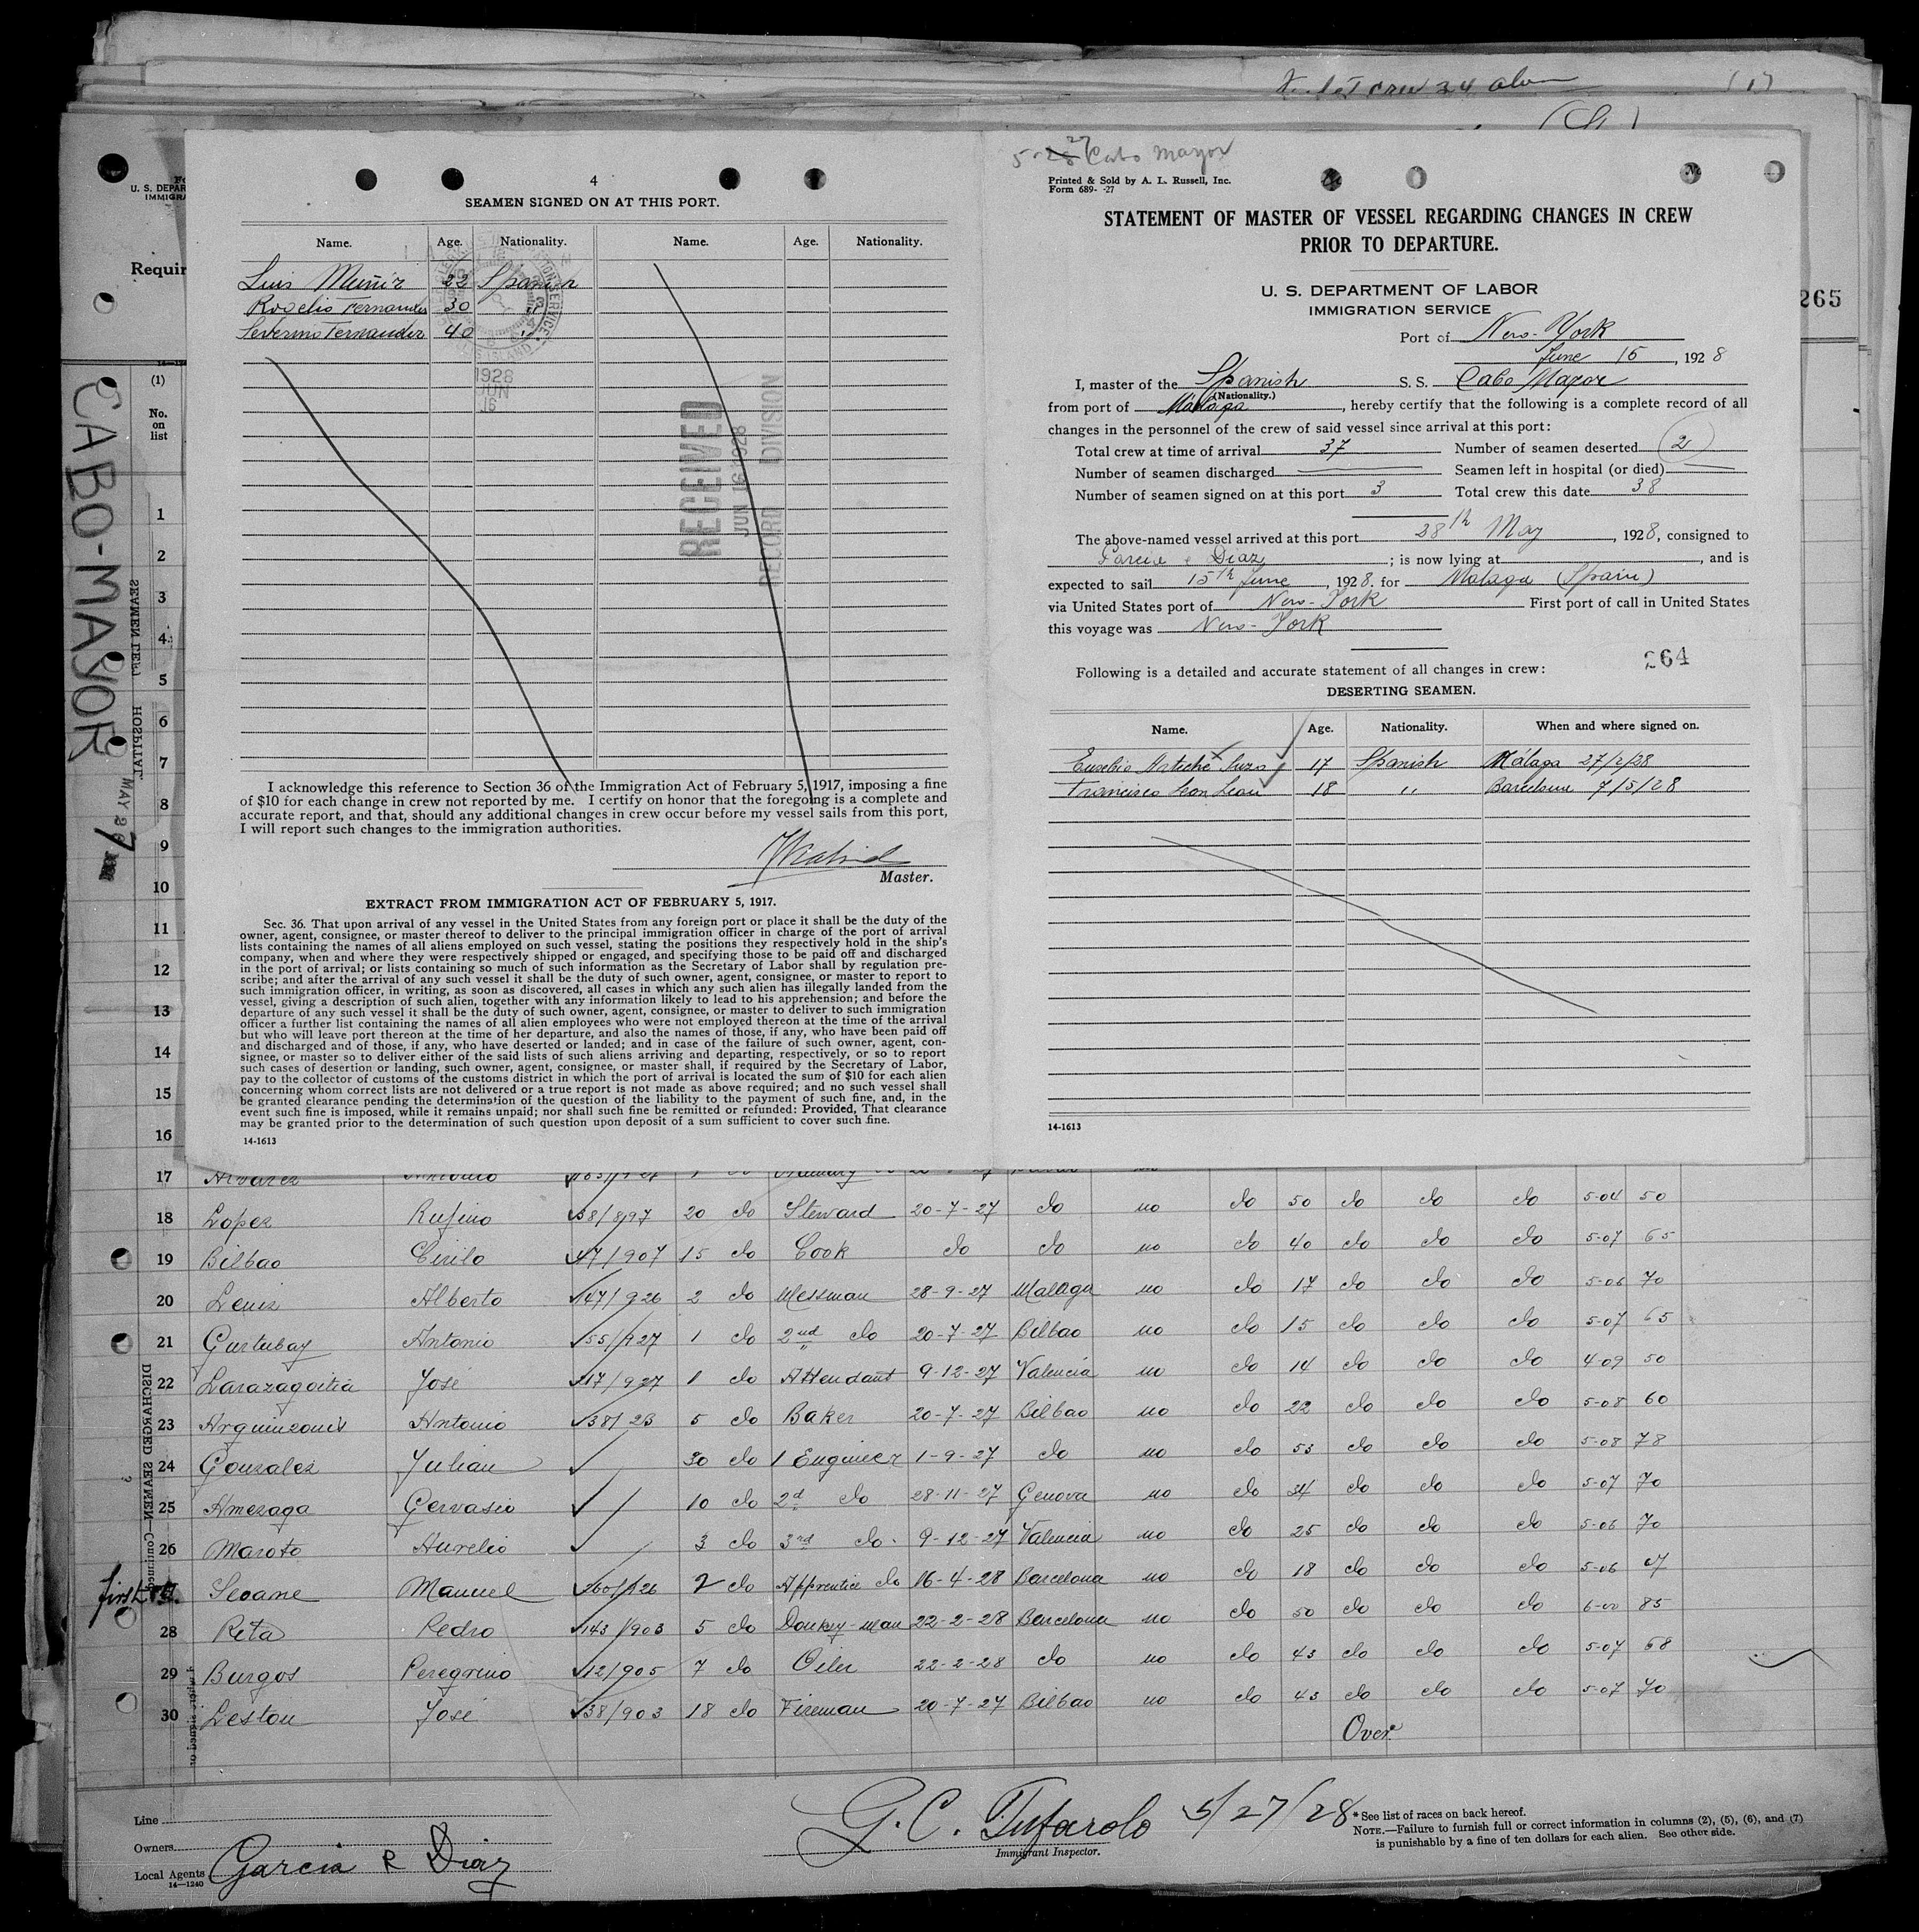 (1)
5-27 Cabo Mayor
4
SEAMEN SIGNED ON AT THIS PORT.
Name. Age. Nationality. Name. Age. Nationality.
Luis Muñiz 22 Spanish
Rogelio Fernandez 30 "
Severino Fernandez 40 "
1928
JUN
16
RECEIVED
JUN 16 1928
RECORD DIVISION
I acknowledge this reference to Section 36 of the Immigration Act of February 5, 1917, imposing a fine
of $10 for each change in crew not reported by me. I certify on honor that the foregoing is a complete and
accurate report, and that, should any additional changes in crew occur before my vessel sails from this port,
I will report such changes to the immigration authorities.
Master.
EXTRACT FROM IMMIGRATION ACT OF FEBRUARY 5, 1917.
Sec. 36. That upon arrival of any vessel in the United States from any foreign port or place it shall be the duty of the
owner, agent, consignee, or master thereof to deliver to the principal immigration officer in charge of the port of arrival
lists containing the names of all aliens employed on such vessel, stating the positions they respectively hold in the ship's
company, when and where they were respectively shipped or engaged, and specifying those to be paid off and discharged
in the port of arrival; or lists containing so much of such information as the Secretary of Labor shall by regulation pre-
scribe; and after the arrival of any such vessel it shall be the duty of such owner, agent, consignee, or master to report to
such immigration officer, in writing, as soon as discovered, all cases in which any such alien has illegally landed from the
vessel, giving a description of such alien, together with any information likely to lead to his apprehension; and before the
departure of any such vessel it shall be the duty of such owner, agent, consignee, or master to deliver to such immigration
officer a further list containing the names of all alien employees who were not employed thereon at the time of the arrival
but who will leave port thereon at the time of her departure, and also the names of those, if any, who have been paid off
and discharged and of those, if any, who have deserted or landed; and in case of the failure of such owner, agent, con-
signee, or master so to deliver either of the said lists of such aliens arriving and departing, respectively, or so to report
such cases of desertion or landing, such owner, agent, consignee, or master shall, if required by the Secretary of Labor,
pay to the collector of customs of the customs district in which the port of arrival is located the sum of $10 for each alien
concerning whom correct lists are not delivered or a true report is not made as above required; and no such vessel shall
be granted clearance pending the determination of the question of the liability to the payment of such fine, and, in the
event such fine is imposed, while it remains unpaid; nor shall such fine be remitted or refunded: Provided, That clearance
may be granted prior to the determination of such question upon deposit of a sum sufficient to cover such fine.
14-1613
Printed & Sold by A. L. Russell, Inc.
Form 689- -27
STATEMENT OF MASTER OF VESSEL REGARDING CHANGES IN CREW
PRIOR TO DEPARTURE.
U. S. DEPARTMENT OF LABOR
IMMIGRATION SERVICE
Port of New-York
June 15, 1928
I, master of the Spanish S. S. Cabo Mayor
(Nationality.)
from port of Málaga, hereby certify that the following is a complete record of all
changes in the personnel of the crew of said vessel since arrival at this port:
Total crew at time of arrival 37 Number of seamen deserted 2
Number of seamen discharged Seamen left in hospital (or died)
Number of seamen signed on at this port 3 Total crew this date 38
The above-named vessel arrived at this port 28th May, 1928, consigned to
Garcia & Diaz; is now lying at , and is
expected to sail 15th June, 1928. for Malaga (Spain)
via United States port of New-York First port of call in United States
this voyage was New-York
264
Following is a detailed and accurate statement of all changes in crew:
DESERTING SEAMEN.
Name. Age. Nationality. When and where signed on.
Eusebio Arteche 17 Spanish Málaga 27/2/28
Francisco Leon Leon 18 " Barcelona 7/5/28
14-1613
265
U. S. DEPAR
IMMIGRA
Requir
(1)
No.
on
list
CABO-MAYOR
MAY
1
2
3
4
5
6
7
8
9
10
11
12
13
14
15
16
17 Alvarez Antonio
18 Lopez Rufino 38/897 20 do Steward 20-7-27 do no do 50 do do do 5-04 50
19 Bilbao Cirilo 47/907 15 do Cook do do no do 40 do do do 5-07 65
20 Alberto 47/926 2 do Messman 28-9-27 Malaga no do 17 do do do 5-06 70
21 Gurtubay Antonio 55/927 1 do 2nd do 20-7-27 Bilbao no do 15 do do do 5-07 65
22 Larazagoitia José 17/927 1 do Attendant 9-12-27 Valencia no do 14 do do do 4-09 50
23 Arguinzonis Antonio 38/23 5 do Baker 20-7-27 Bilbao no do 22 do do do 5-08 60
24 Gonzalez Julian 30 do 1 Engineer 1-9-27 do no do 53 do do do 5-08 78
25 Amezaga Gervasio 10 do 2d do 28-11-27 Genova no do 34 do do do 5-07 70
26 Maroto Aurelio 3 do 3rd do. 9-12-27 Valencia no do 25 do do do 5-06 70
first Seoane Manuel 60/926 2 do Apprentice do 16-4-28 Barcelona no do 18 do do do 5-06 67
28 Rita Pedro 143/903 5 do Donkey-man 22-2-28 Barcelona no do 50 do do do 6-00 85
29 Burgos Peregrino 12/905 7 do Oiler 22-2-28 do no do 43 do do do 5-07 68
30 Leston José 38/903 18 do Fireman 20-7-27 Bilbao no do 43 do do do 5-07 70
Over
DISCHARGED SEAMEN—Continued
Line
Owners
Local Agents Garcia & Diaz
14—1240
G. C. Tufarolo 5/27/28
Immigrant Inspector.
*See list of races on back hereof.
NOTE.—Failure to furnish full or correct information in columns (2), (5), (6), and (7)
is punishable by a fine of ten dollars for each alien. See other side.